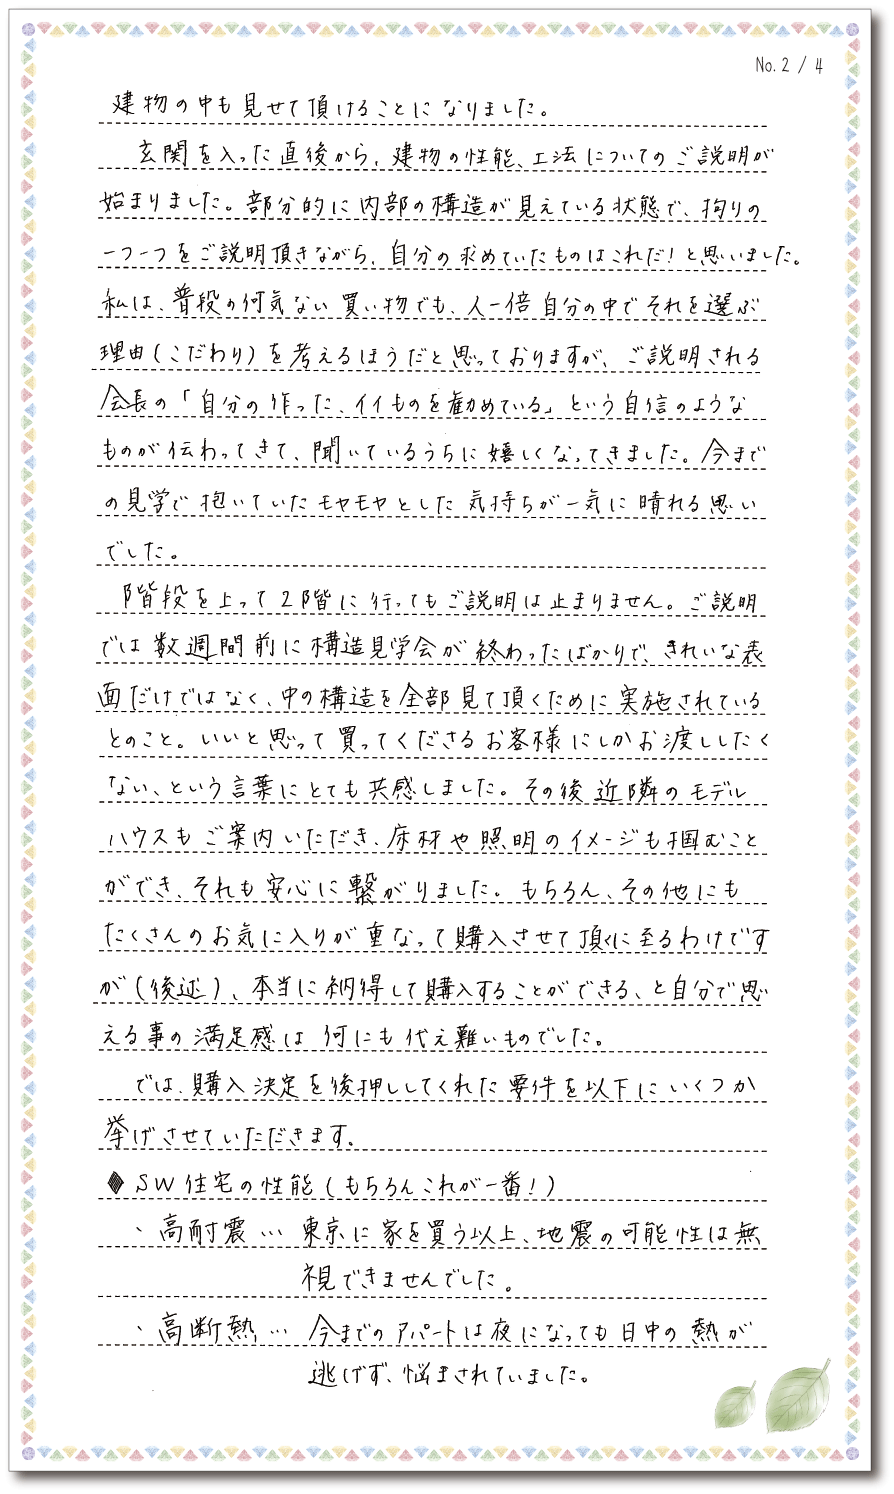 No. 2 / 4
建物の中も見せて頂けることになりました。
玄関を入った直後から、建物の性能、工法についてのご説明が
始まりました。部分的に内部の構造が見えている状態で、拘りの
一つ一つをご説明頂きながら、自分の求めていたものはこれだ!と思いました。
私は、普段の何気ない買い物でも、人一倍自分の中でそれを選ぶ
理由(こだわり)を考えるほうだと思っておりますが、ご説明される
会長の「自分の作った、イイものを勧めている」という自信のような
ものが伝わってきて、聞いているうちに嬉しくなってきました。今まで
の見学で抱いていたモヤモヤとした気持ちが一気に晴れる思い
でした。
階段を上って2階に行ってもご説明は止まりません。ご説明
では数週間前に構造見学会が終わったばかりで、きれいな表
面だけではなく、中の構造を全部見て頂くために実施されている
とのこと。いいと思って買ってくださるお客様にしかお渡ししたく
ない、という言葉にとても共感しました。その後近隣のモデル
ハウスもご案内いただき、床材や照明のイメージも掴むこと
ができ、それも安心に繋がりました。もちろん、その他にも
たくさんのお気に入りが重なって購入させて頂くに至るわけです
が(後述)、本当に納得して購入することができる、と自分で思
える事の満足感は何にも代え難いものでした。
では、購入決定を後押ししてくれた要件を以下にいくつか
挙げさせていただきます。
◆SW住宅の性能(もちろんこれが一番!)
・高耐震… 東京に家を買う以上、地震の可能性は無
視できませんでした。
・高断熱… 今までのアパートは夜になっても日中の熱が
逃げず、悩まされていました。